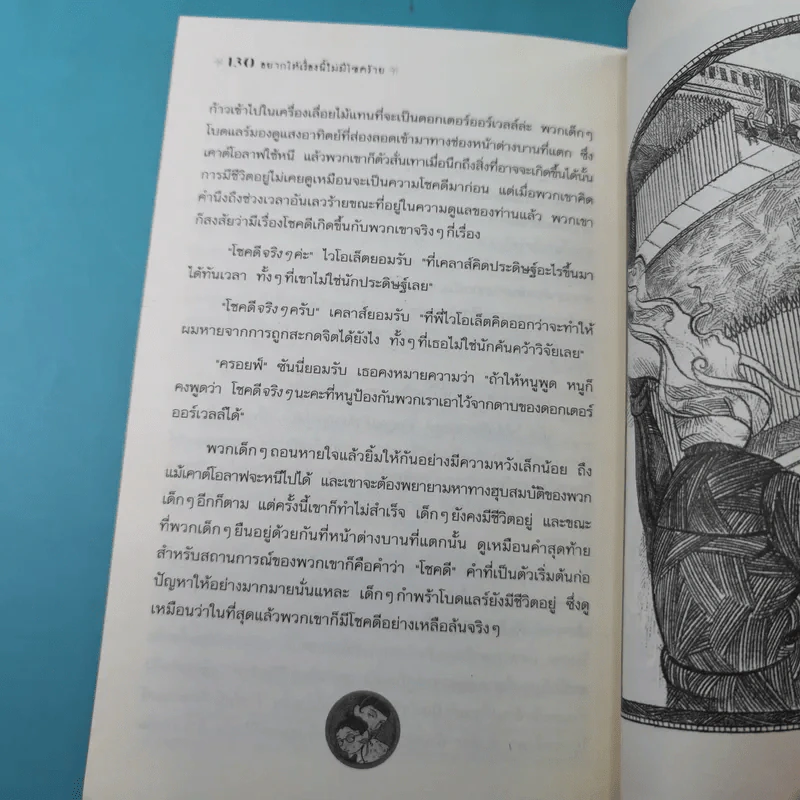 130 อยากให้เรื่องนี้ไม่มีโชคร้าย
ก้าวเข้าไปในเครื่องเลื่อยไม้แทนที่จะเป็นดอกเตอร์ออร์เวลล์ล่ะ พวกเด็กๆ
โบดแลร์มองดูแสงอาทิตย์ที่ส่องลอดเข้ามาทางช่องหน้าต่างบานที่แตก ซึ่ง
เคาต์โอลาฟใช้หนี แล้วพวกเขาก็ตัวสั่นเทาเมื่อนึกถึงสิ่งที่อาจจะเกิดขึ้นได้นั้น
การมีชีวิตอยู่ไม่เคยดูเหมือนจะเป็นความโชคดีมาก่อน แต่เมื่อพวกเขาคิด
คำนึงถึงช่วงเวลาอันเลวร้ายขณะที่อยู่ในความดูแลของท่านแล้ว พวกเขา
ก็สงสัยว่ามีเรื่องโชคดีเกิดขึ้นกับพวกเขาจริงๆ กี่เรื่อง
"โชคดีจริงๆ ค่ะ" ไวโอเล็ตยอมรับ "ที่เคลาส์คิดประดิษฐ์อะไรขึ้นมา
ได้ทันเวลา ทั้งๆ ที่เขาไม่ใช่นักประดิษฐ์เลย"
"โชคดีจริงๆ ครับ" เคลาส์ยอมรับ "ที่พี่ไวโอเล็ตคิดออกว่าจะทำให้
ผมหายจากการถูกสะกดจิตได้ยังไง ทั้งๆ ที่เธอไม่ใช่นักค้นคว้าวิจัยเลย"
"ครอยฟ์" ซันนี่ยอมรับ เธอคงหมายความว่า "ถ้าให้หนูพูด หนูก็
คงพูดว่า โชคดีจริงๆ นะคะที่หนูป้องกันพวกเราเอาไว้จากดาบของดอกเตอร์
ออร์เวลล์ได้"
พวกเด็กๆ ถอนหายใจแล้วยิ้มให้กันอย่างมีความหวังเล็กน้อย ถึง
แม้เคาต์โอลาฟจะหนีไปได้ และเขาจะต้องพยายามหาทางฮุบสมบัติของพวก
เด็กๆ อีกก็ตาม แต่ครั้งนี้เขาก็ทำไม่สำเร็จ เด็กๆ ยังคงมีชีวิตอยู่ และขณะ
ที่พวกเด็กๆ ยืนอยู่ด้วยกันที่หน้าต่างบานที่แตกนั้น ดูเหมือนคำสุดท้าย
สำหรับสถานการณ์ของพวกเขาก็คือคำว่า "โชคดี" คำที่เป็นตัวเริ่มต้นก่อ
ปัญหาให้อย่างมากมายนั่นแหละ เด็กๆ กำพร้าโบดแลร์ยังมีชีวิตอยู่ ซึ่งดู
เหมือนว่าในที่สุดแล้วพวกเขาก็มีโชคดีอย่างเหลือล้นจริงๆ